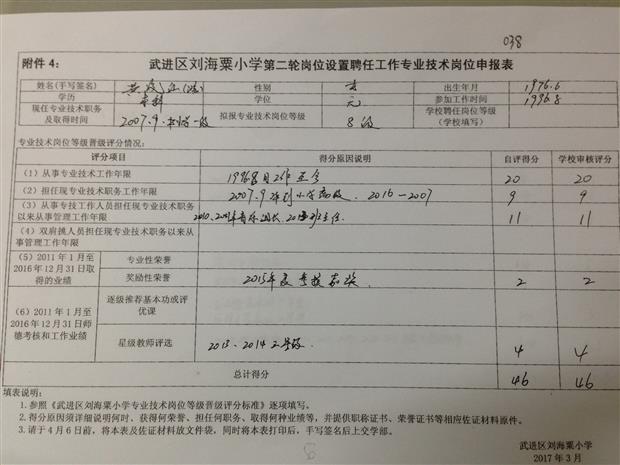 038
附件 4： 武进区刘海粟小学第二轮岗位设置聘任工作专业技术岗位申报表
姓名(手写签名) 性别 女 出生年月 1976.6
学历 本科 学位 无 参加工作时间 1996.8
现任专业技术职务及取得时间 2007.9. 拟报专业技术岗位等级 8级 学校聘任岗位等级（学校填写）
专业技术岗位等级晋级评分情况：
评分项目 得分原因说明 自评得分 学校审核评分
（1）从事专业技术工作年限 1996.8月工作至今 20 20
（2）担任现专业技术职务工作年限 2007.9 评到小学高级. 2016－2007 9 9
（3）从事专技工作人员担任现专业技术职务以来从事管理工作年限 11 11
（4）双肩挑人员担任现专业技术职务以来从事管理工作年限
（5）2011 年 1 月至 2016 年 12 月 31 日取得的业绩 专业性荣誉
奖励性荣誉 2015年度 嘉奖 2 2
（6）2011 年 1 月至 2016 年 12 月 31 日师德考核和工作业绩 逐级推荐基本功或评优课
星级教师评选 2013、2014 4 4
总计得分 46 46
填表说明：
1.参照《武进区刘海粟小学专业技术岗位等级晋级评分标准》逐项填写。
2.得分原因须详细说明何时、获得何荣誉、担任何职务、取得何种业绩等，并提供职称证书、荣誉证书等相应佐证材料原件。
3.请于 4 月 6 日前，将本表及佐证材料放文件袋，同时将本表打印后，手写签名后上交学部。
武进区刘海粟小学
2017 年 3 月